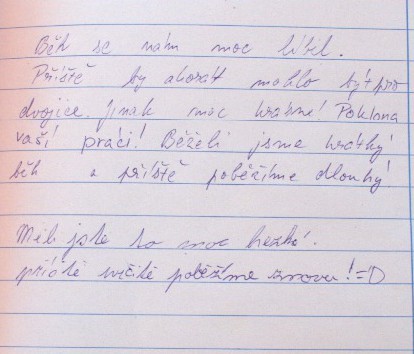 Běh se nám moc líbil.
Příště by akorát mohlo být pro
dvojice. Jinak moc krásné! Poklona
vaší práci! Běželi jsme krátký
běh a příště poběžíme dlouhý!
Měli jste to moc hezké.
příště určitě poběžíme znovu! =D